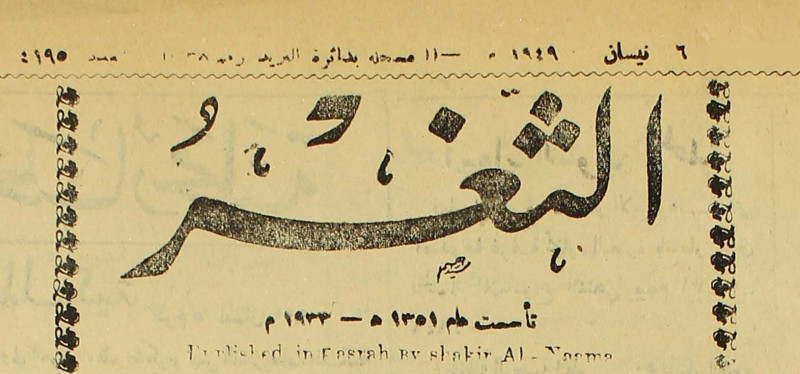 ٦ نيسان ١٩٤٩ م — ١١ مسجلة بدائرة البريد عدد ٤١٩٥
الثغر
تأسست عام ١٣٥١ ه — ١٩٣٣ م
Published in Basrah By Shakir Al-Naama